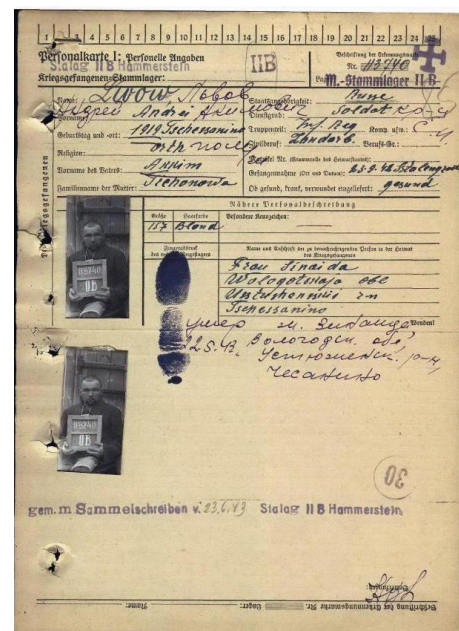 1 2 3 4 5 6 7 8 9 10 11 12 13 14 15 16 17 18 19 20 21 22 23 24 25
Personalkarte I: Personelle Angaben
Stalag II B Hammerstein
Kriegsgefangenen-Stammlager:
II B
Beschriftung der Erkennungsmarke
Nr. 113740
M.-Stammlager II B
Name: Lwow Львов
Vorname: Andrei
Geburtstag und -ort: 1919 Tschessanino
Religion: orth
Vorname des Vaters: Akkim
Familienname der Mutter:
Staatsangehörigkeit: Russe
Dienstgrad: Soldat
Truppenteil: Inf. Reg Komp. usw.:
Zivilberuf: Landarb. Berufs-Gr.:
Matrikel Nr. (Stammrolle des Heimatstaates):
Gefangennahme (Ort und Datum):
Ob gesund, krank, verwundet eingeliefert: gesund
Des Kriegsgefangenen
Nähere Personalbeschreibung
Größe Haarfarbe Besondere Kennzeichen:
157 Blond
Fingerabdruck
Name und Anschrift der zu benachrichtigenden Person in der Heimat
des Kriegsgefangenen
Frau Sinaida
Wologotskaja obl
Tschessanino
113740
II B
Wenden!
умер
22.5.43
Вологодск. обл,
Устюженск. р-н,
Чесанино
113740
II B
30
gem. m Sammelschreiben v. 23.6.43 Stalag II B Hammerstein
Bemerkungen:
Beschriftung der Erkennungsmarke Nr. Lager: Name: